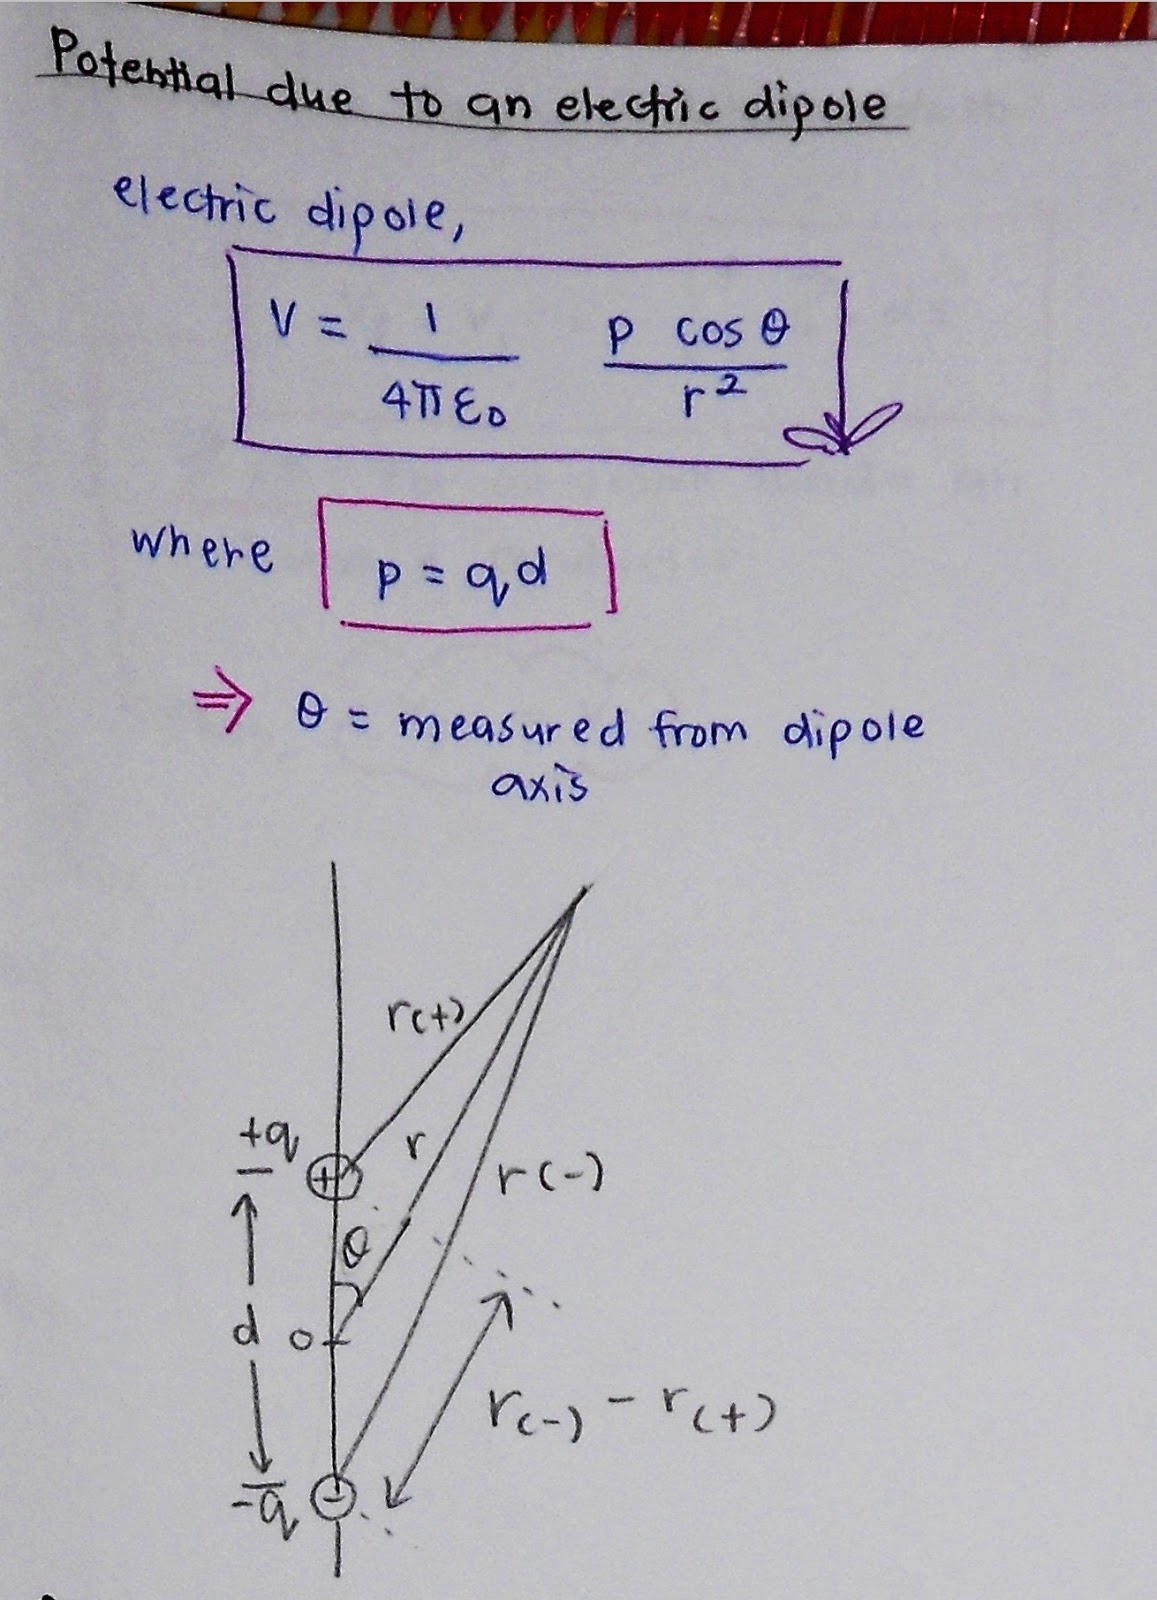 Potential due to an electric dipole
electric dipole,
V = 1 / 4πε₀  p cos θ / r²
where p = qd
⇒ θ = measured from dipole
axis
r(+)
+q
+
r
r(-)
θ
d
o
r(-) - r(+)
-q
-